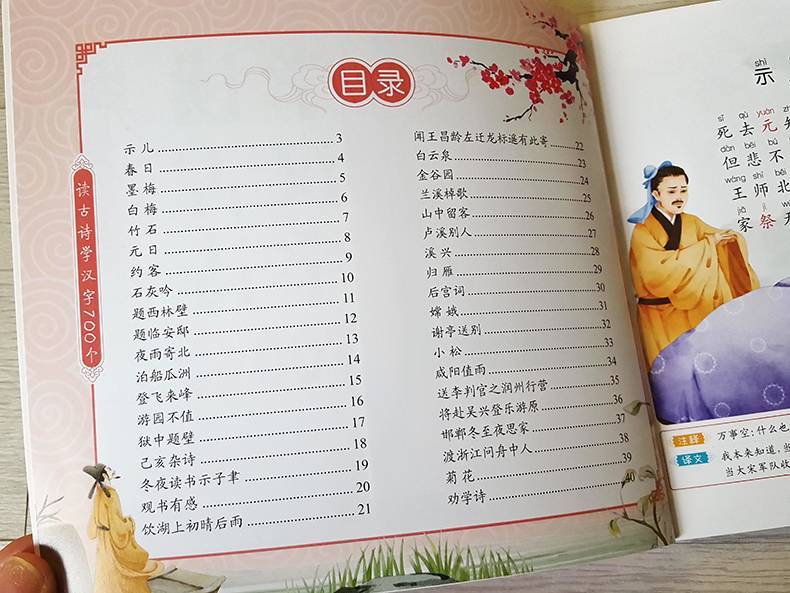 目录
读古诗学汉字700个
示儿 3
春日 4
墨梅 5
白梅 6
竹石 7
元日 8
约客 9
石灰吟 10
题西林壁 11
题临安邸 12
夜雨寄北 13
泊船瓜洲 14
登飞来峰 15
游园不值 16
狱中题壁 17
己亥杂诗 18
冬夜读书示子聿 19
观书有感 20
饮湖上初晴后雨 21
闻王昌龄左迁龙标遥有此寄 22
白云泉 23
金谷园 24
兰溪棹歌 25
山中留客 26
卢溪别人 27
溪兴 28
归雁 29
后宫词 30
嫦娥 31
谢亭送别 32
小松 33
咸阳值雨 34
送李判官之润州行营 35
将赴吴兴登乐游原 36
邯郸冬至夜思家 37
渡浙江问舟中人 38
菊花 39
劝学诗 40
shì
示
sǐ qù yuán
死去元
dàn bēi bù
但悲不
wáng shī běi
王师北
jiā jì
家祭
注释 万事空:什么也
译文 我本来知道,当
当大宋军队收